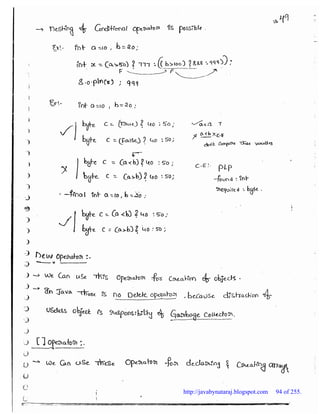 49
→ nesting of Conditional operator is possible.
Ex:- int a=10, b=20;
int x = (a>50) ? 777 : ((b>100) ? 888 : 999));
F F
S.o.pln(x); 999
Ex:- int a=10, b=20;
✓ byte c = (true) ? 40 : 50; ✓ a<b T
byte c = (False) ? 40 : 50; x a<b x c<
x byte c = (a<b) ? 40 : 50; C.E: PLP
byte c = (a>b) ? 40 : 50; -found : int
- final int a=10, b=20; required : byte.
✓ byte c = (a<b) ? 40 : 50;
byte c = (a>b) ? 40 : 50;
new operator :-
→ we can use this operator for creation of objects.
→ In Java there is no Delete operator. because distraction of
useless object is responsibility of Garbage Collector.
[ ] operator :-
→ we can use these operator for declaring & creating arrays
http://javabynataraj.blogspot.com 94 of 255.